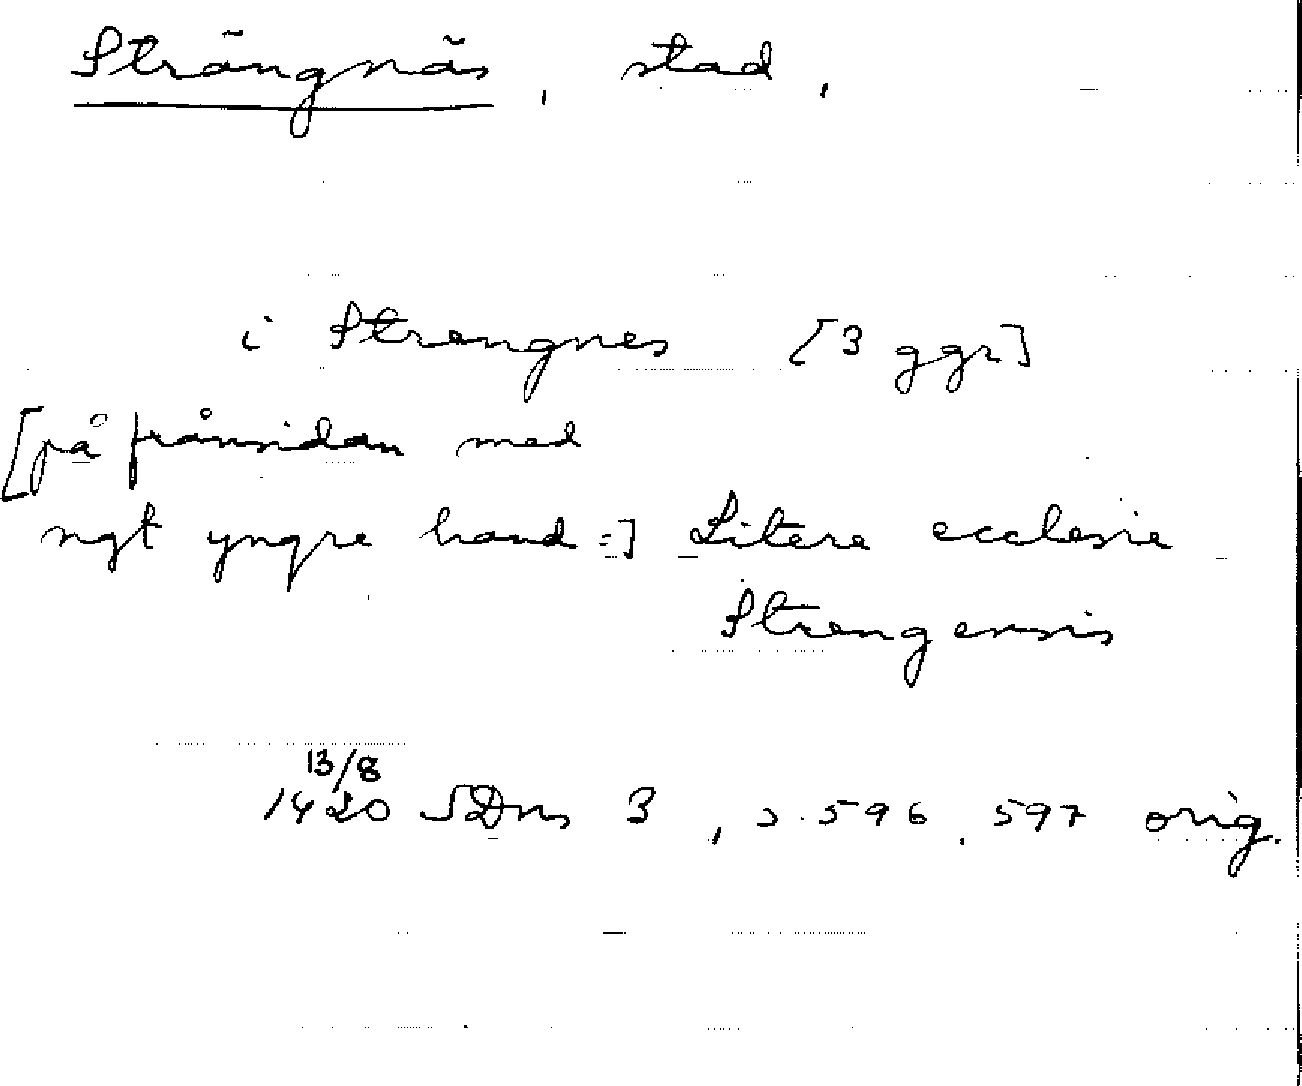 Strängnäs, stad,
i Strengnes [3 ggr]
[på frånsidan med
ngt yngre hand:] Litere ecclesie
Strengensis
13/8
1420 SDns 3, s. 596, 597 orig.